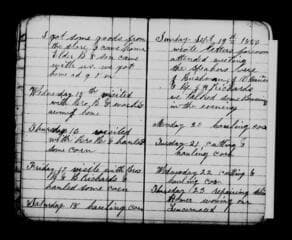 I got some goods from
the store & came home
Elder B & son came
with us. we got
home at 9 P.M
Wednesday 15th visited
with Bro. B & worked
around home
Thursday 16 visited
with Bro B & hauled
some corn
Friday 17 visite with Bro
B & Richards &
hauled some corn
Saturday 18 hauling corn
Sunday Sept. 19th
wrote letters forenoon
attended meeting
the Speakers were
F. Bushman
& Richards
in the evening
Monday 20 hauling corn
Tuesday 21 cutting &
hauling corn
Wednesday 22 cutting &
hauling corn
Thursday 23 repairing